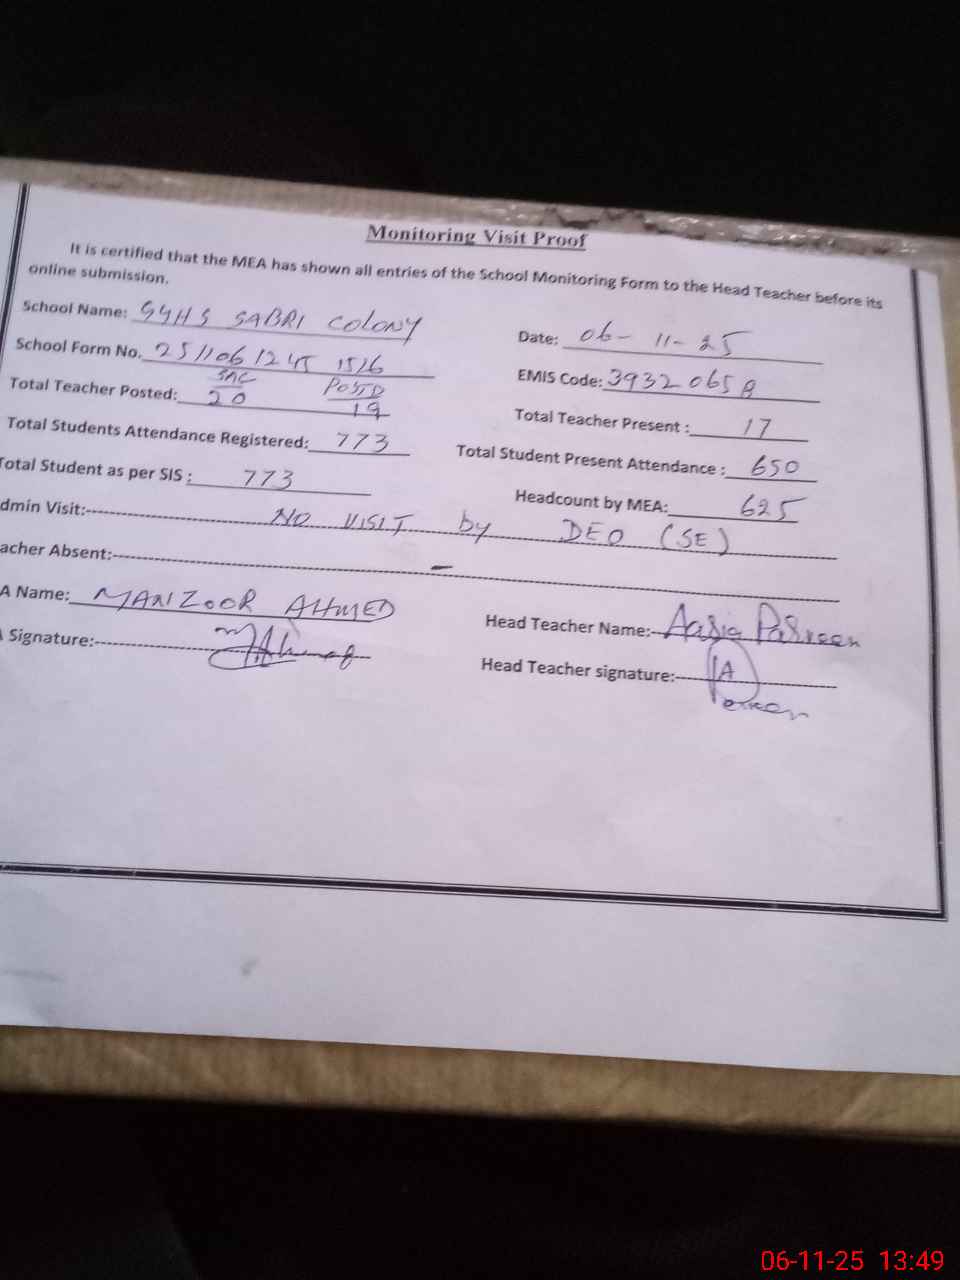 Monitoring Visit Proof
It is certified that the MEA has shown all entries of the School Monitoring Form to the Head Teacher before its
online submission.
School Name: GGHS SABRI COLONY
Date: 06-11-25
School Form No. 251106 1245 1516
EMIS Code: 39320658
SNC POSTD
Total Teacher Posted: 20 19
Total Teacher Present : 17
Total Students Attendance Registered: 773
Total Student Present Attendance : 650
Total Student as per SIS : 773
Headcount by MEA: 625
dmin Visit: NO VISIT by DEO (SE)
acher Absent: -
A Name: MANZOOR AHMED
Head Teacher Name: Aasia Parveen
Signature:
Head Teacher signature:
06-11-25 13:49